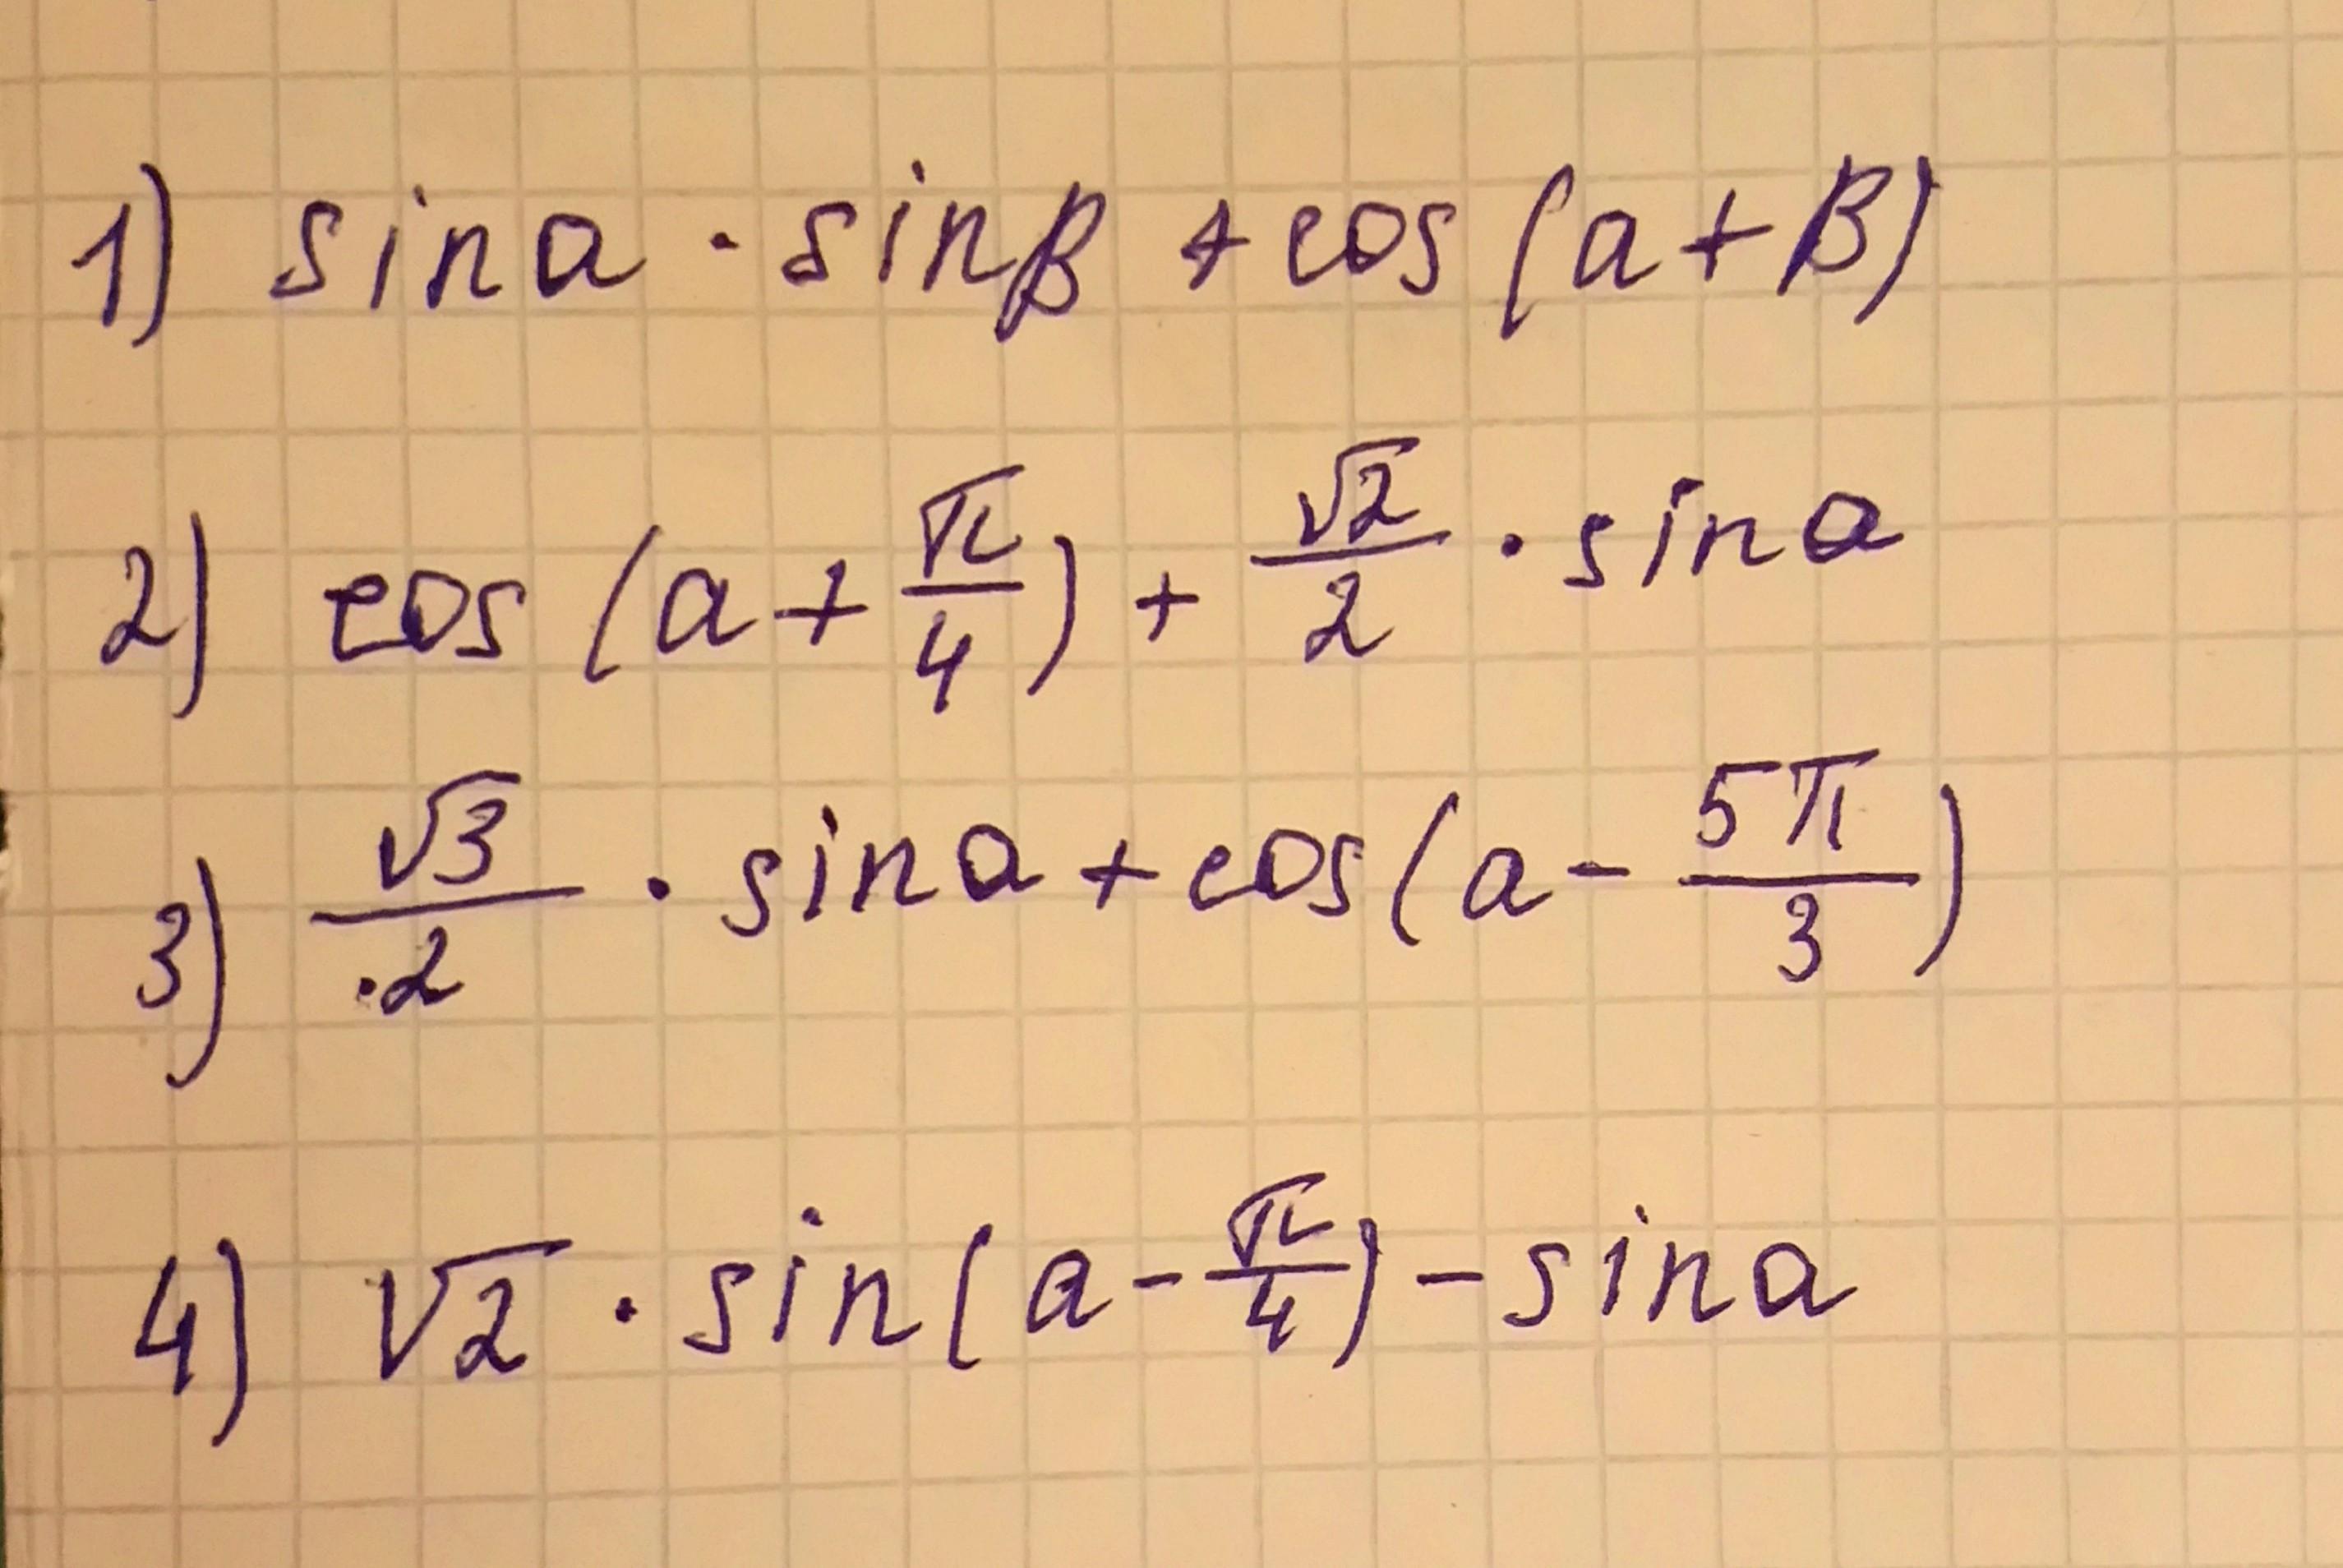 1) sin a · sin β + cos (a + β)
2) cos (a + π/4) + √2/2 · sin a
3) √3/2 · sin a + cos (a - 5π/3)
4) √2 · sin (a - π/4) - sin a